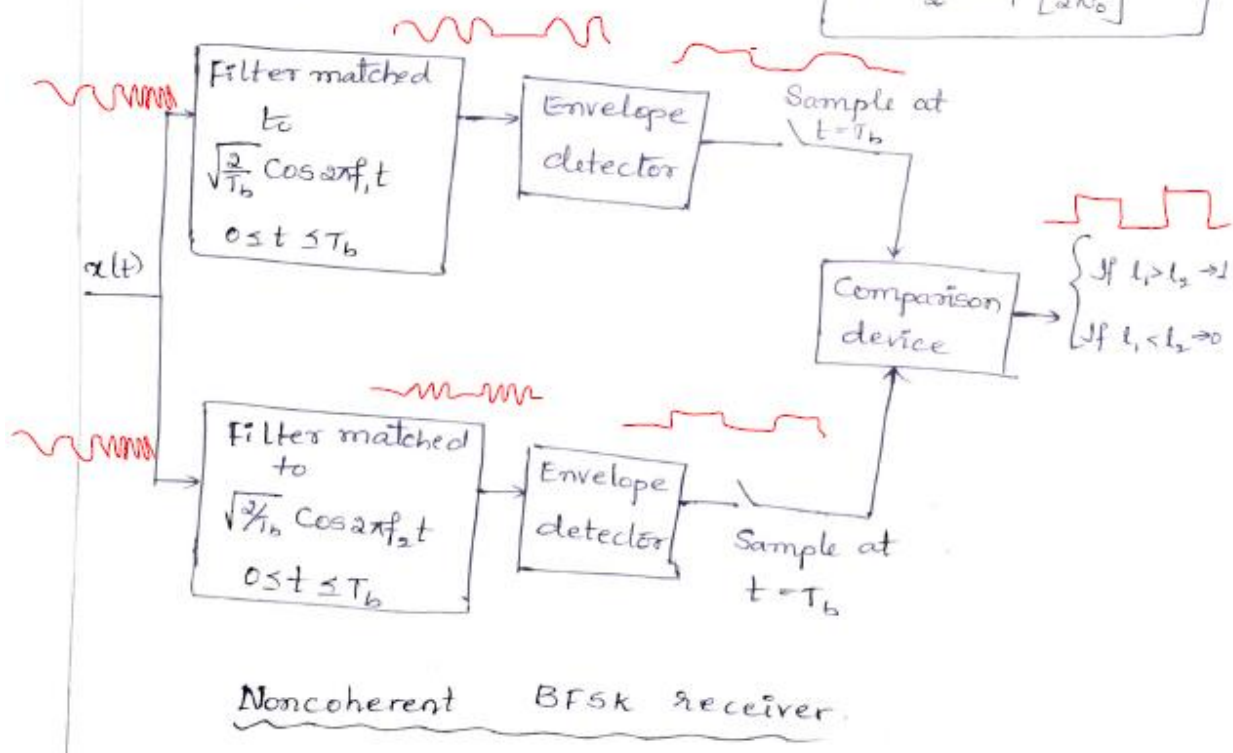 [2N₀]
Filter matched
to
√2/T_b Cos 2πf₁t
0 ≤ t ≤ T_b
Envelope
detector
Sample at
t = T_b
x(t)
Comparison
device
If l₁ > l₂ → 1
If l₁ < l₂ → 0
Filter matched
to
√2/T_b Cos 2πf₂t
0 ≤ t ≤ T_b
Envelope
detector
Sample at
t = T_b
Noncoherent BFSK receiver.